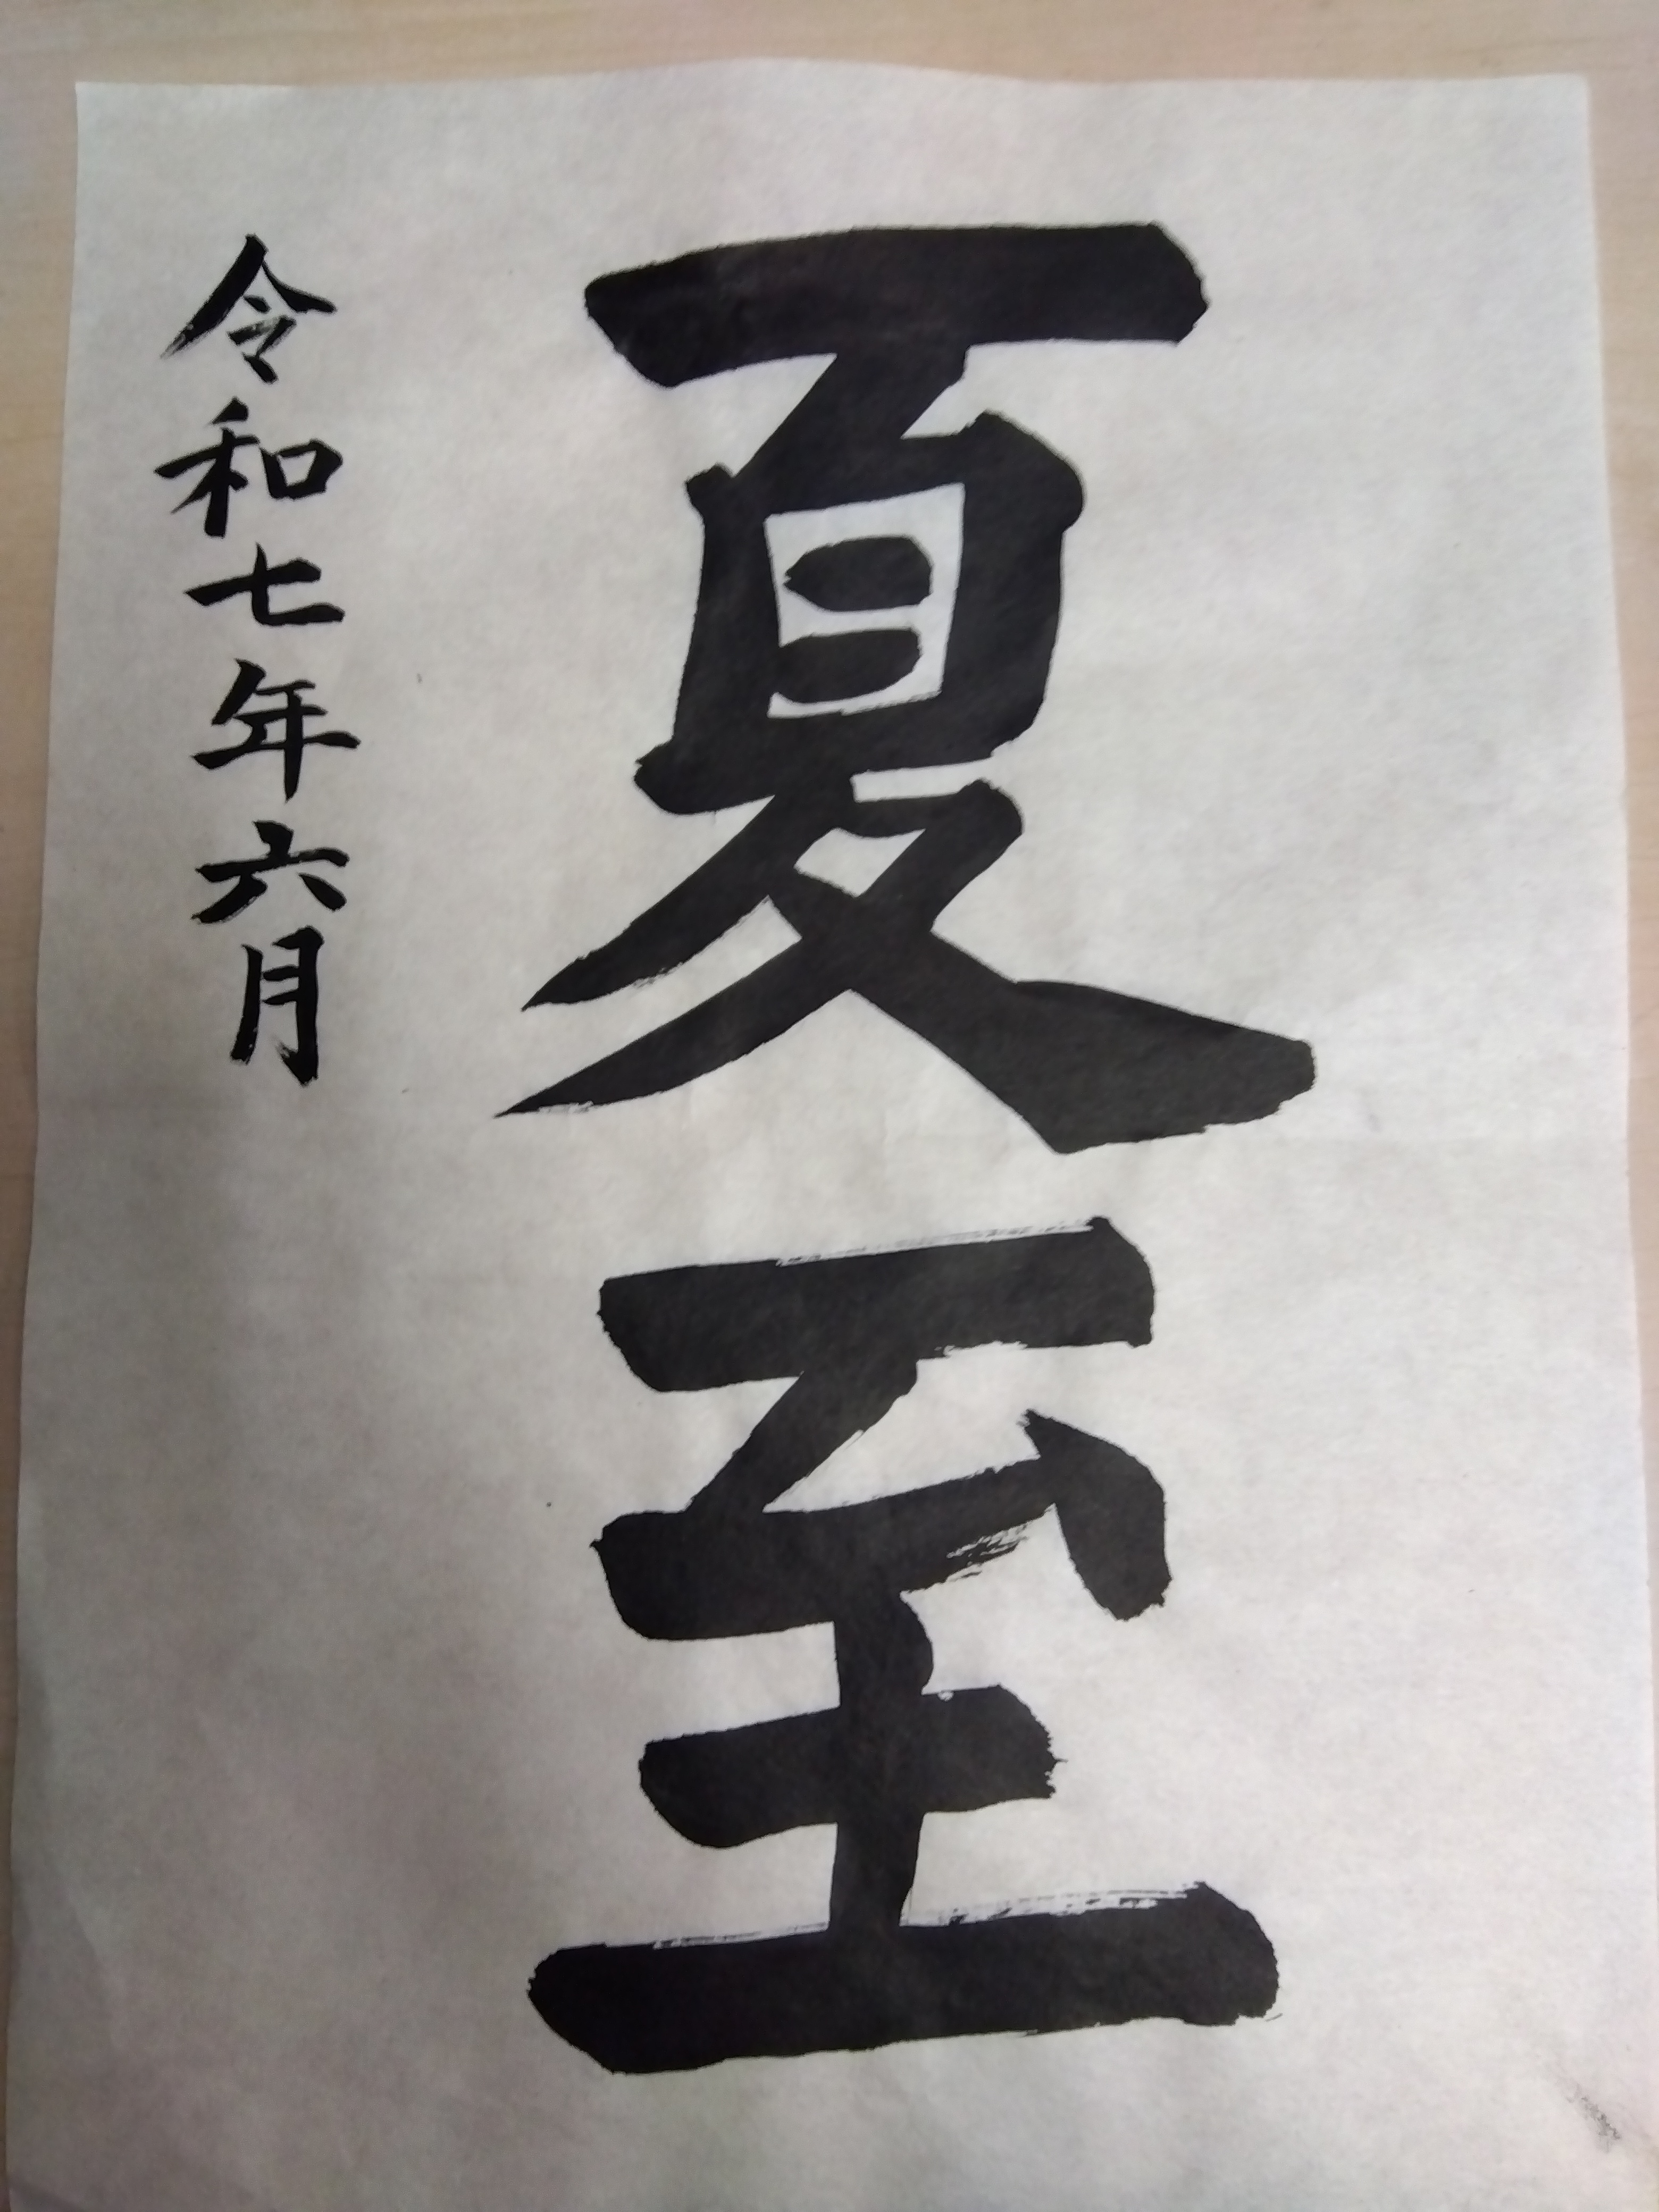 夏至
令和七年六月